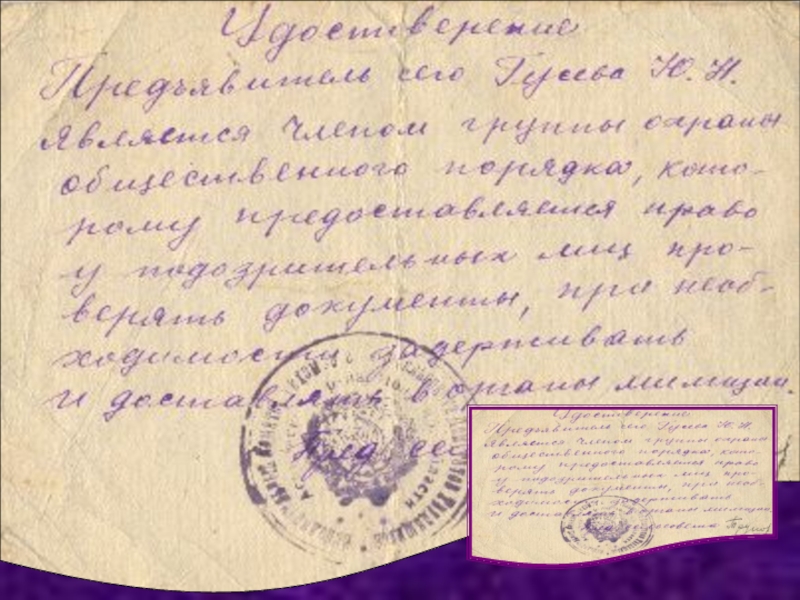 Удостоверение
Предъявитель сего Гусева Ю. Н.
является членом группы охраны
общественного порядка, кото-
рому предоставляется право
у подозрительных лиц про-
верять документы, при необ-
ходимости задерживать
и доставлять в органы милиции.
Пред сел
Удостоверение
Предъявитель сего Гусева Ю. Н.
является членом группы охраны
общественного порядка, кото-
рому предоставляется право
у подозрительных лиц про-
верять документы, при необ-
ходимости задерживать
и доставлять в органы милиции.
Пред сельсовета